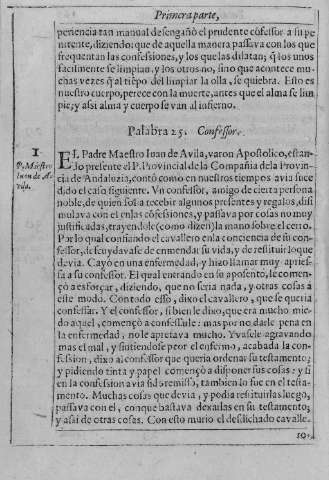 Primera parte,
periencia tan manual desengañó el prudente cõfessor a su pe
nitente, diziendo: que de aquella manera passava con los que
frequentan las confessiones, y los que las dilatan; q̃ los unos
facilmente se limpian, y los otros no, sino que acontece mu-
chas vezes q̃ al tiẽpo del limpiar la olla, se quiebra. Esto es
nuestro cuerpo, perece con la muerte, antes que el alma se lim
pie, y assi alma y cuerpo se van al infierno.
Palabra 25. Confessor.
I
P. Maestro
Iuan de A-
vila.
EL Padre Maestro Iuan de Avila, varon Apostolico, estan-
do presente el P. Provincial de la Compañia de la Provin
cia de Andaluzia, contó como en nuestros tiempos avia suce
dido el caso siguiente. Vn confessor, amigo de cierta persona
noble, de quien solia recebir algunos presentes y regalos, disi
mulava con el en las cõfessiones, y passava por cosas no muy
justificadas, trayendole (como dizen) la mano sobre el cerro.
Por lo qual confiando el cavallero en la conciencia de su con-
fessor, descuydavase de enmendar su vida, y de restituir lo que
devia. Cayó en una enfermedad, y hizo llamar muy apries-
sa a su confessor. El qual entrando en su aposento, le comen-
çó a esforçar, diziendo, que no seria nada, y otras cosas a
este modo. Con todo esso, dixo el cavallero, que se queria
confessar. Y el confessor, si bien le dixo, que era mucho mie-
do aquel, començó a confessarle: mas por no darle pena en
la enfermedad, no le apretava mucho. Yvasele agravando
mas el mal, y sintiendose peor el enfermo, acabada la con-
fession, dixo al confessor que queria ordenar su testamento;
y pidiendo tinta y papel començó a disponer sus cosas: y si
en la confession avia sido remisso, tambien lo fue en el testa-
mento. Muchas cosas que devia, y podia restituirlas luego,
passava con el, con que bastava dexarlas en su testamento;
y assi de otras cosas. Con esto murio el desdichado cavalle-
ro,